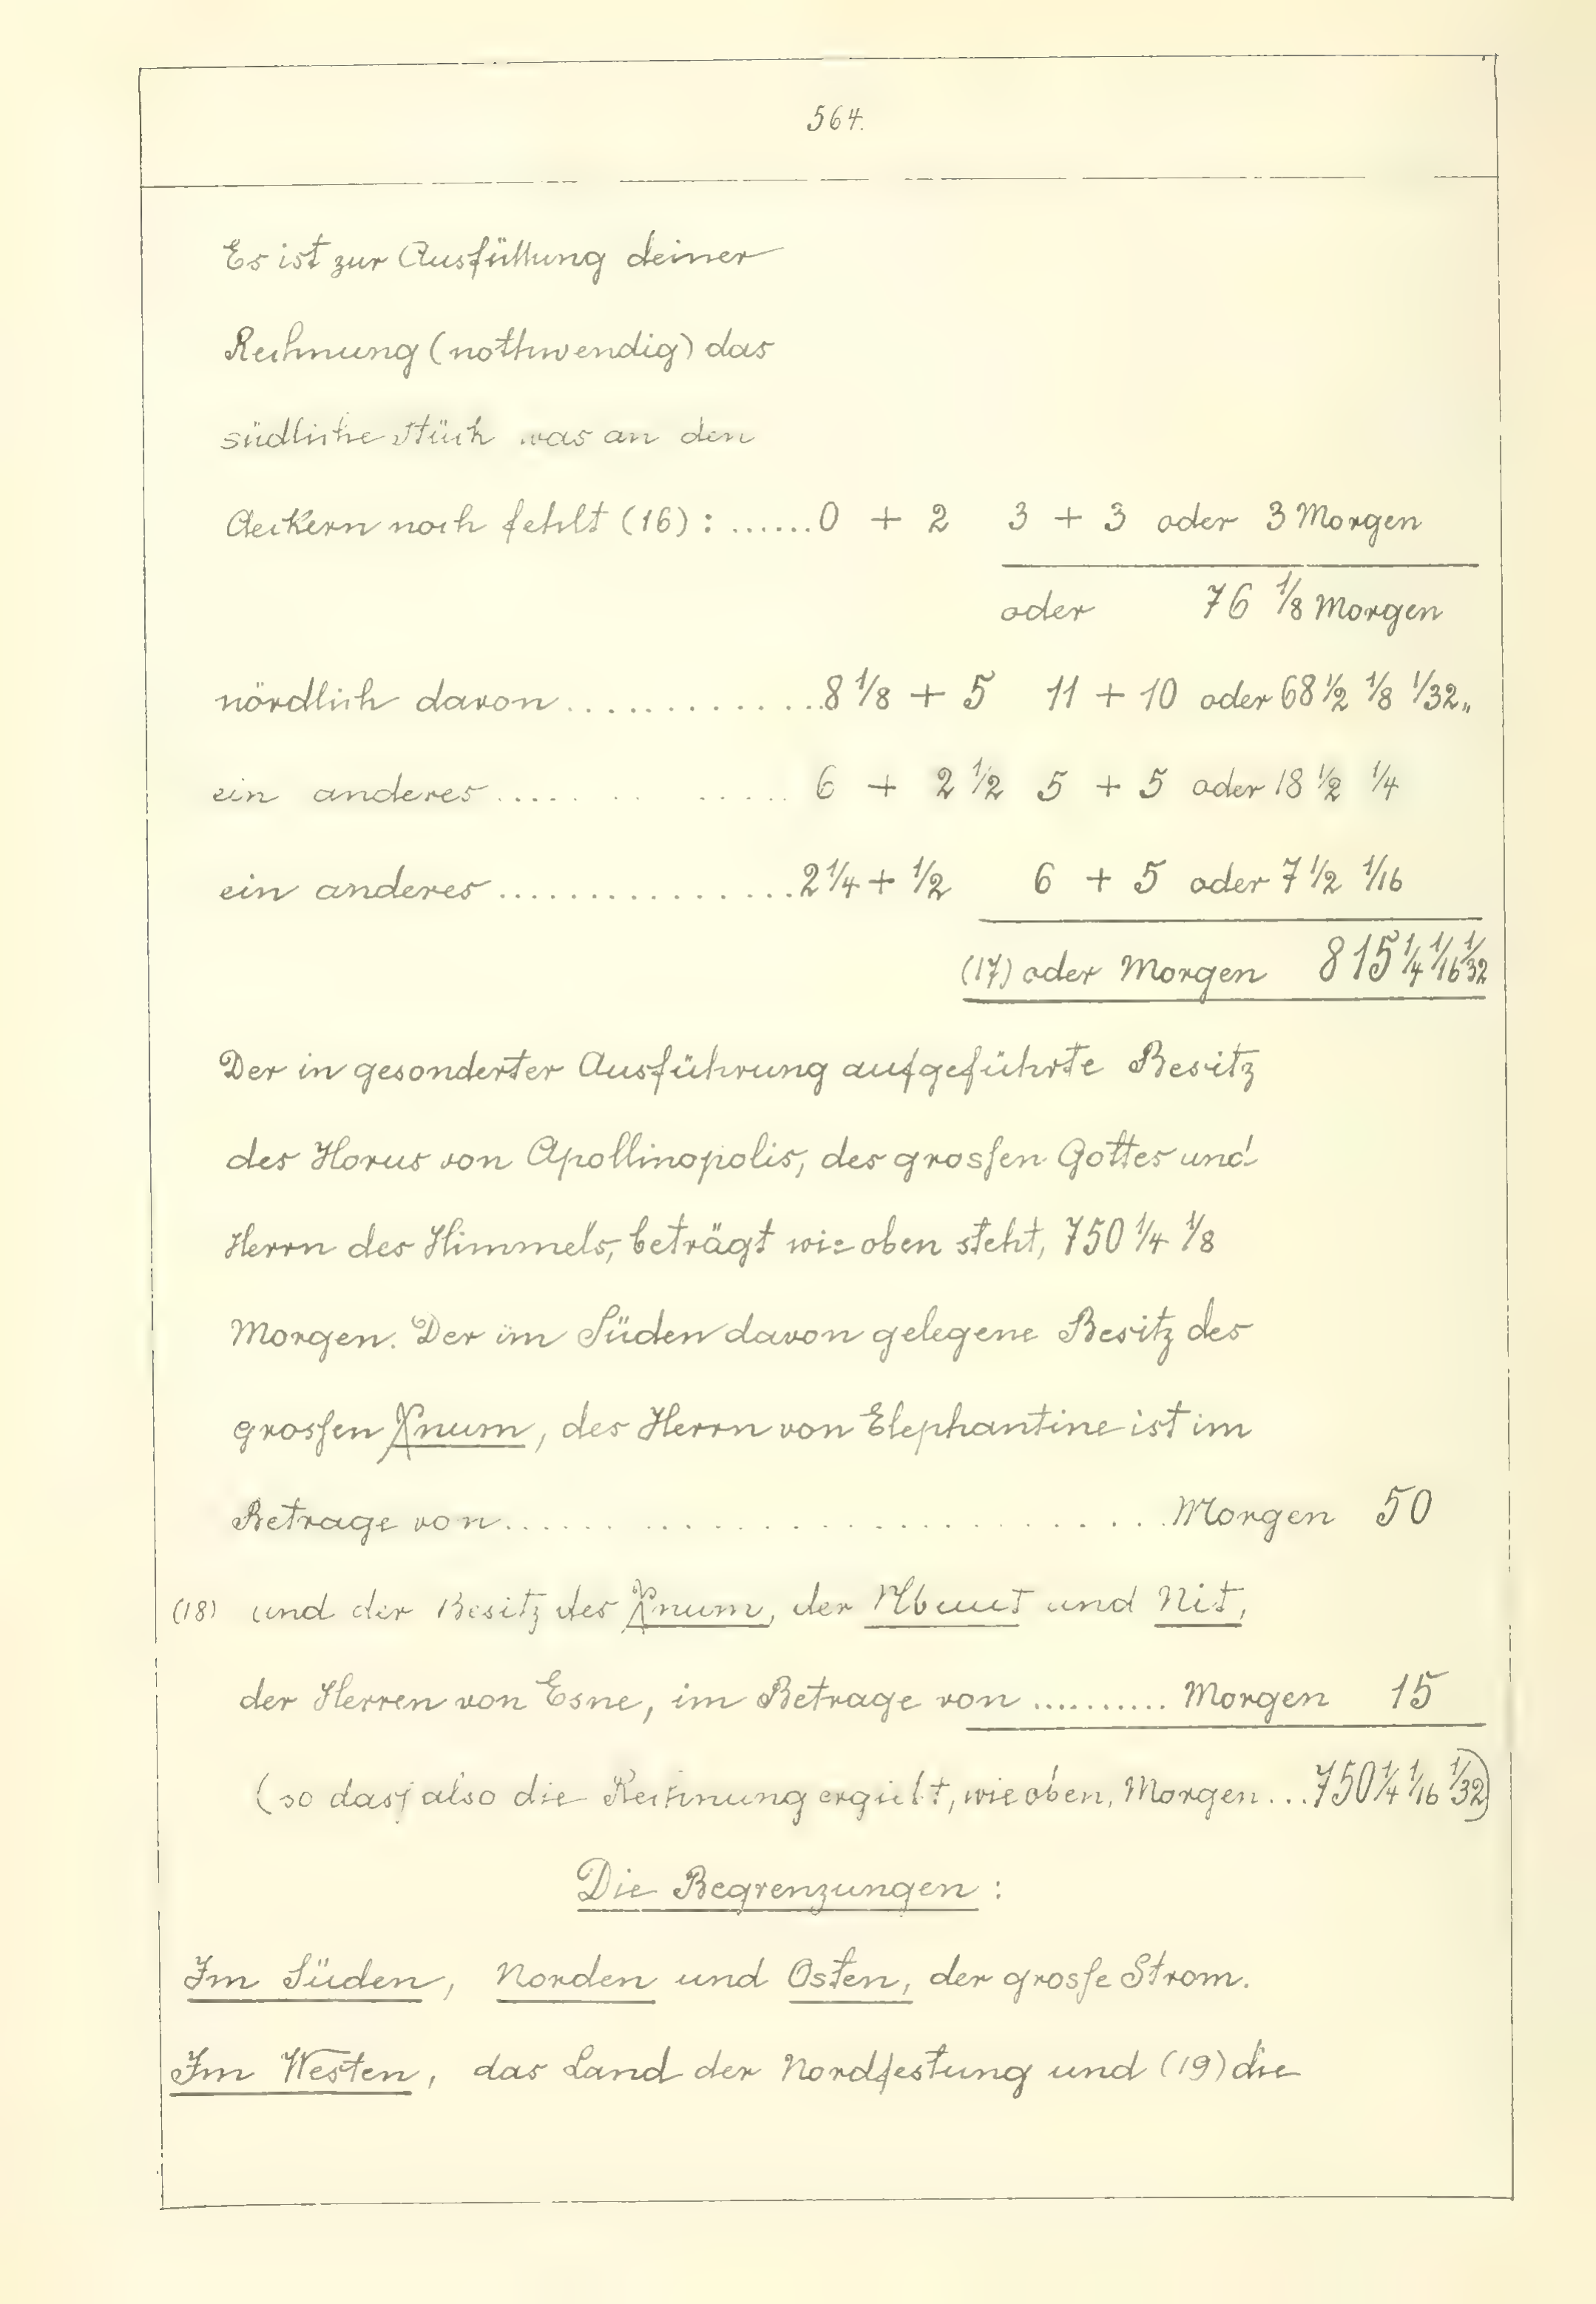 564.
Es ist zur Ausfüllung deiner
Rechnung (nothwendig) das
südliche Stück was an den
Aeckern noch fehlt (16) : ......0 + 2 3 + 3 oder 3 Morgen
oder 76 1/8 Morgen
nördlich davon..............8 1/8 + 5 11 + 10 oder 68 1/2 1/8 1/32 „
ein anderes.... . ..... 6 + 2 1/2 5 + 5 oder 18 1/2 1/4
ein anderes................2 1/4 + 1/2 6 + 5 oder 7 1/2 1/16
(17) oder Morgen 815 1/4 1/16 1/32
Der in gesonderter Ausführung aufgeführte Besitz
des Horus von Apollinopolis, des grosſen Gottes und
Herrn des Himmels, beträgt wie oben steht, 750 1/4 1/8
Morgen. Der im Süden davon gelegene Besitz des
grosſen Χnum, des Herrn von Elephantine ist im
Betrage von......................Morgen 50
(18) und der Besitz des Χnum, der und Nit,
der Herren von Esne, im Betrage von .......... Morgen 15
(so dasſ also die Rechnung ergiebt, wie oben, Morgen...750 1/4 1/16 1/32)
Die Begrenzungen :
Im Süden, Norden und Osten, der grosſe Strom.
Im Westen, das Land der Nordfestung und (19) die